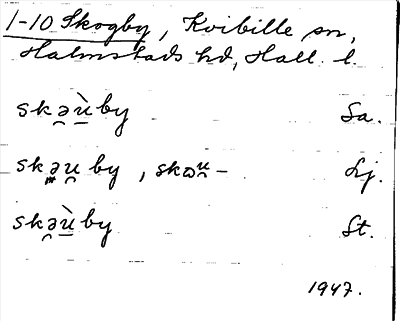 1-10 Skogby, Kvibille sn,
Halmstads hd, Hall. l.
skə̯ù̱by Sa.
skə̯u̯by, skɷu̯- Lj.
skə̯ù̱by St.
1947.